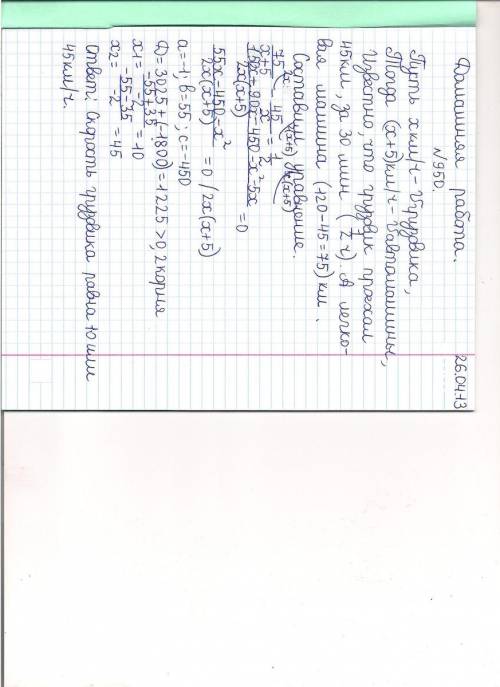 Домашняя работа. 26.04.13
N 950.
Пусть x км/ч - V грузовика,
Тогда (x+5) км/ч - V автомашины,
Известно, что грузовик проехал
45 км, за 30 мин (1/2 ч). А легко-
вая машина (120-45=75) км.
Составим уравнение.
75/(x+5) - 45/x = 1/2
(150x + 90x - 450 - x² - 5x)/(2x(x+5)) = 0
(55x - 450 - x²)/(2x(x+5)) = 0 / 2x(x+5)
a=-1; b=55; c=-450
D=3025+(-1800)=1225>0, 2 корня
x1 = (-55+35)/-2 = 10
x2 = (-55-35)/-2 = 45
Ответ: Скорость грузовика равна 10 или
45 км/ч.